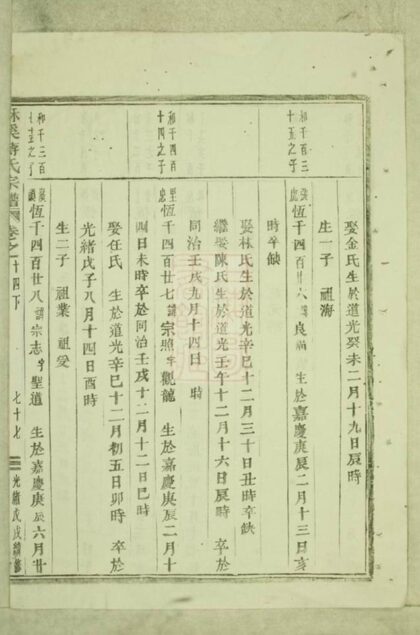 娶金氏生於道光癸未二月十九日辰時
生一子 祖海
和千百三十五之子
恆千四百廿六諱良 生於嘉慶庚辰二月十三日亥
時卒缺
娶林氏生於道光辛巳十二月三十日丑時卒缺
繼娶陳氏生於道光壬午十二月十六日辰時 卒於
同治壬戌九月十四日 時
和千四百十四之子
恆千四百廿七諱宗照字觀龍 生於嘉慶庚辰二月十
四日未時卒於同治壬戌十二月十二日巳時
娶任氏 生於道光辛巳十二月初五日卯時 卒於
光緒戊子八月十四日酉時
生二子 祖業 祖受
和千三百 之子
恆千四百廿八諱宗志字聖道 生於嘉慶庚辰六月廿
溪蔣氏宗譜 卷之 十四下 七十七 光緒戊戌續修